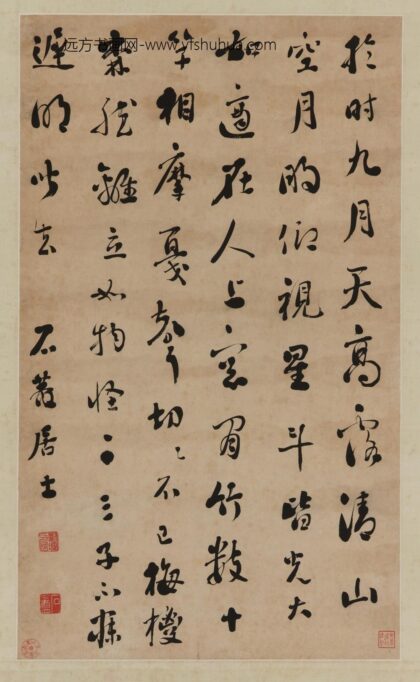 远方书画网-www.yfshuhua.com
於时九月天高露清山
空月明仰視星斗皆光大
如適在人上窓間竹數十
竿相摩戛聲切〻不已梅椶
森然離立如物怪二三子不寐
遲明皆去 石菴居士